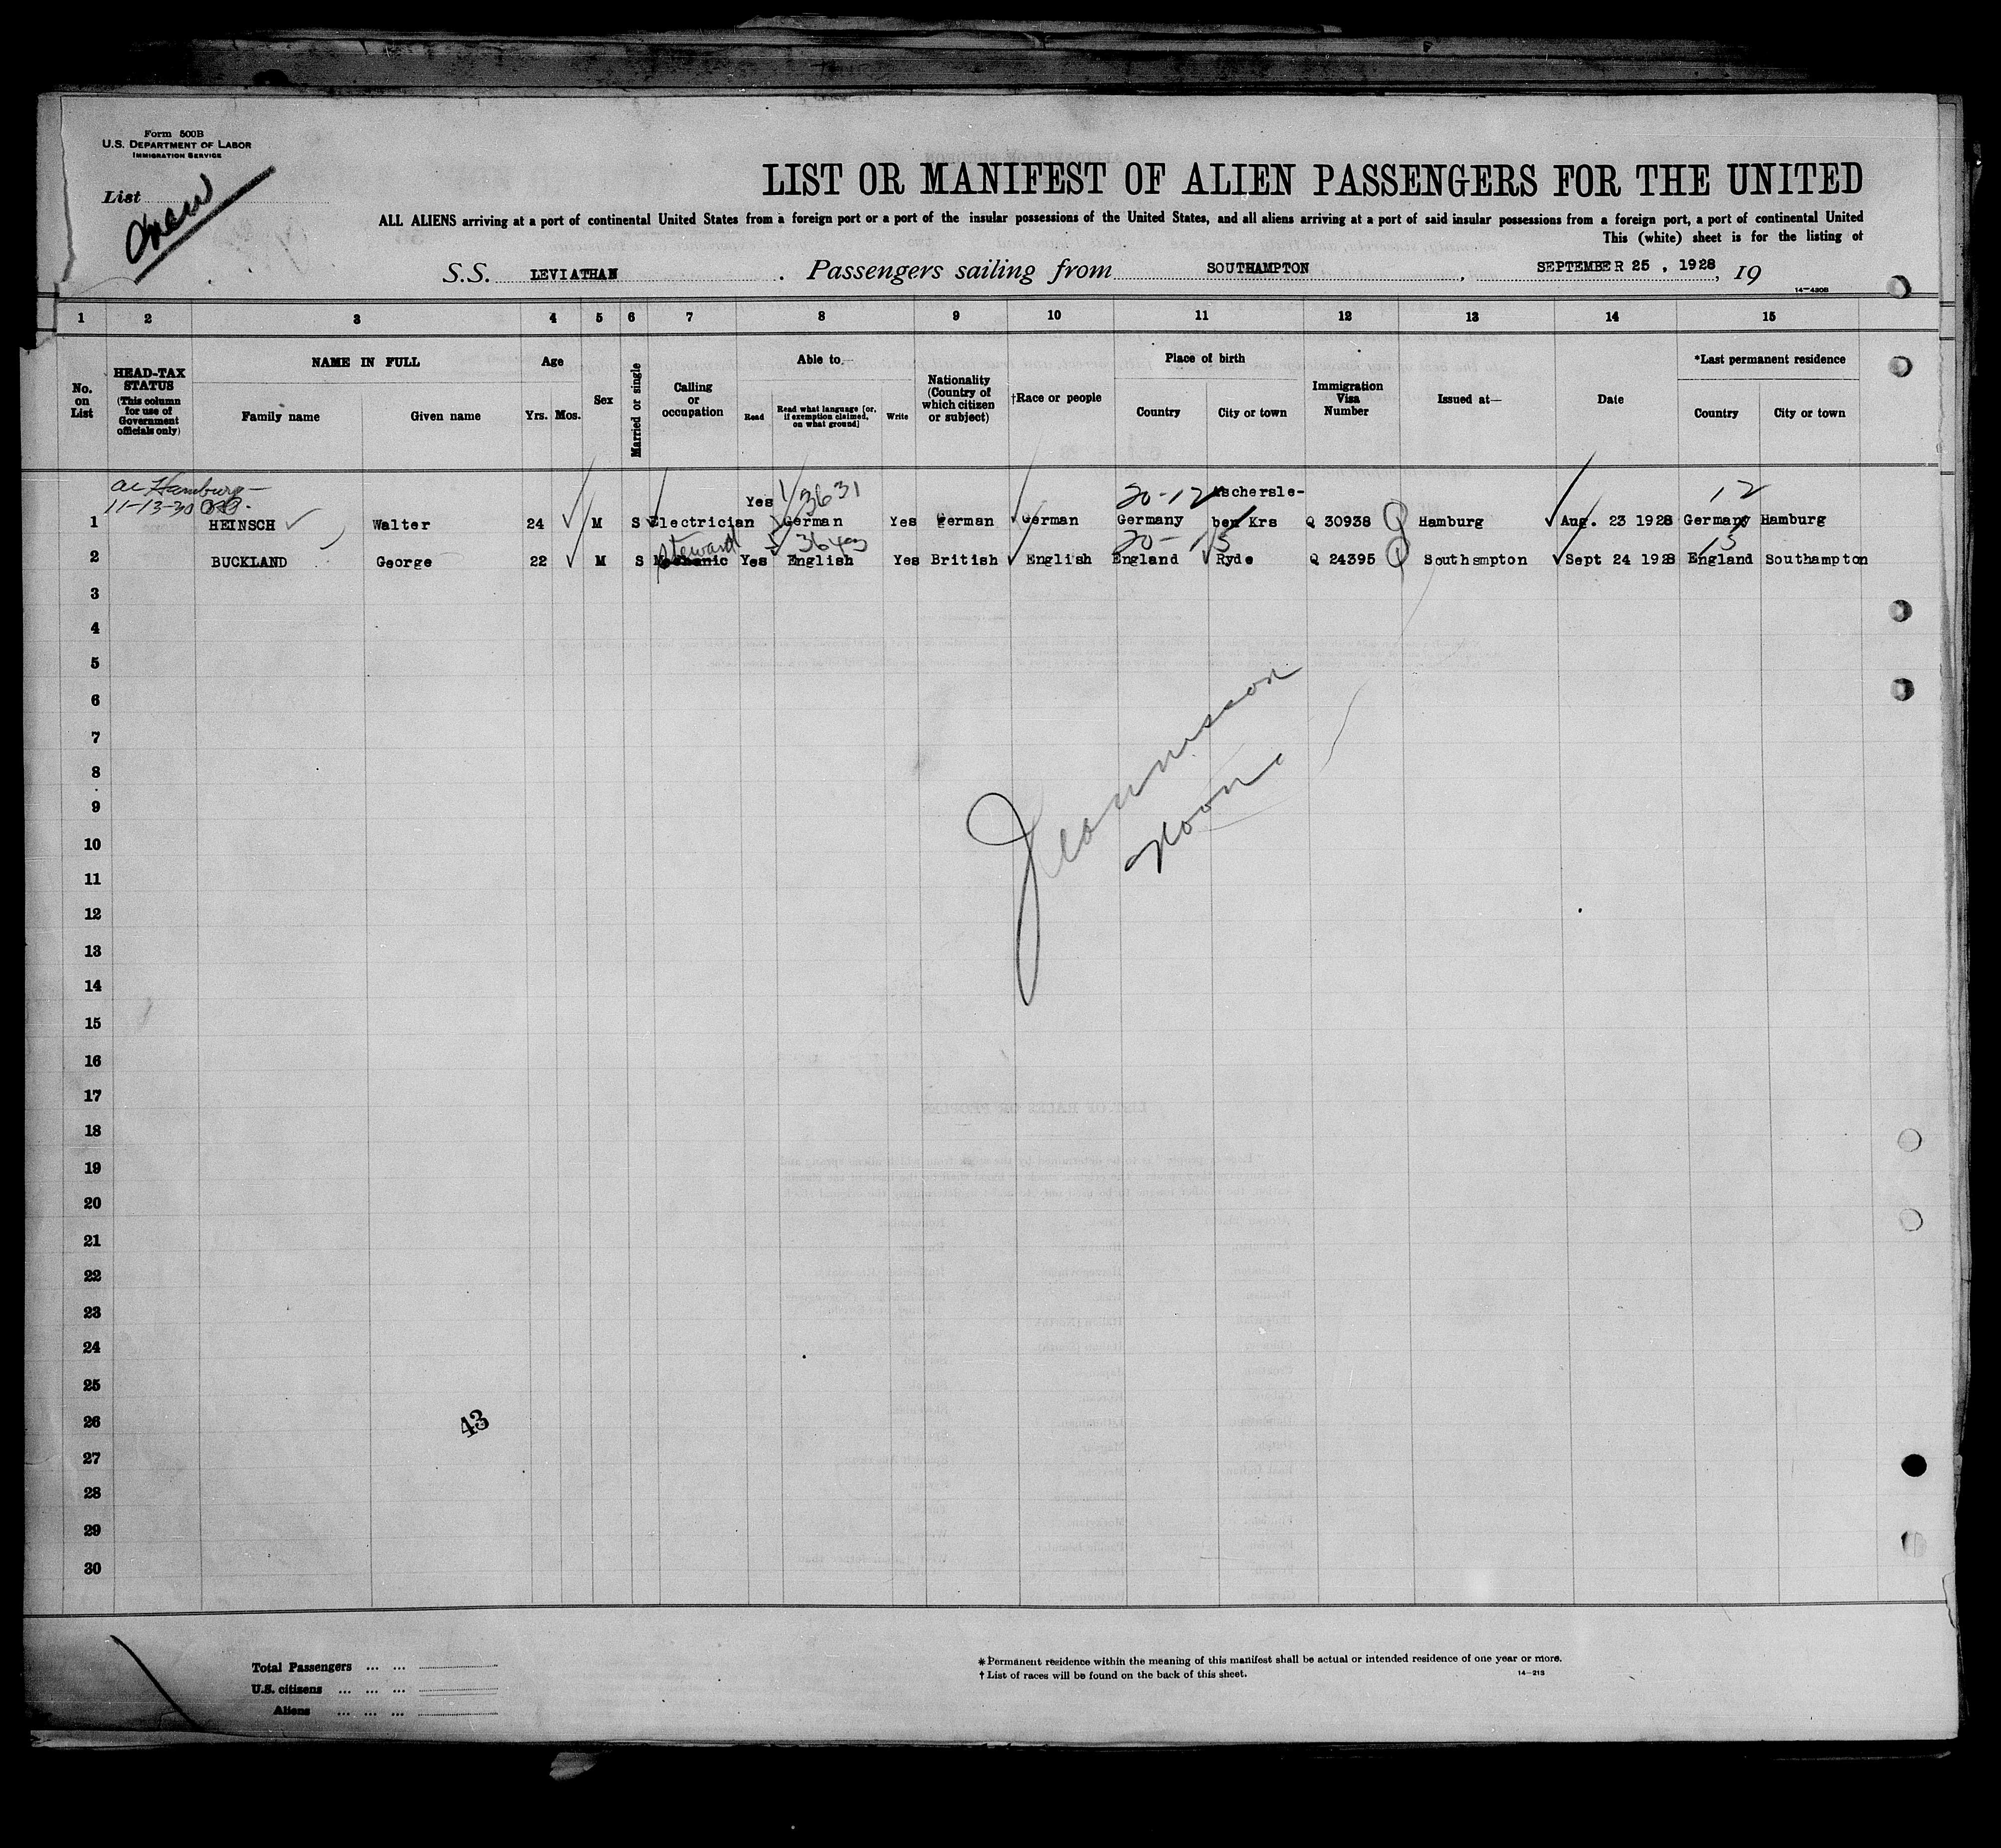 Form 500B
U.S. DEPARTMENT OF LABOR
IMMIGRATION SERVICE
List
Crew
LIST OR MANIFEST OF ALIEN PASSENGERS FOR THE UNITED
ALL ALIENS arriving at a port of continental United States from a foreign port or a port of the insular possessions of the United States, and all aliens arriving at a port of said insular possessions from a foreign port, a port of continental United
This (white) sheet is for the listing of
S.S. LEVIATHAN . Passengers sailing from SOUTHAMPTON , SEPTEMBER 25 , 1928 , 19
14—430B
1 2 3 4 5 6 7 8 9 10 11 12 13 14 15
No. on List
HEAD-TAX STATUS (This column for use of Government officials only)
NAME IN FULL
Family name Given name
Age
Yrs. Mos.
Sex
Married or single
Calling or occupation
Able to—
Read
Read what language [or, if exemption claimed, on what ground]
Write
Nationality (Country of which citizen or subject)
†Race or people
Place of birth
Country City or town
Immigration Visa Number
Issued at—
Date
*Last permanent residence
Country City or town
Hamburg—
11-13-30
Yes 3631 20-12 Aschersle- 12
1 HEINSCH Walter 24 M S Electrician German Yes German German Germany ben Krs Q 30938 Hamburg Aug. 23 1928 Germany Hamburg
Steward 364 20- 13 13
2 BUCKLAND George 22 M S Mechanic Yes English Yes British English England Ryde Q 24395 Southampton Sept 24 1928 England Southampton
3
4
5
6
7
8
9
10
11
12
13
14
15
16
17
18
19
20
21
22
23
24
25
26
27
28
29
30
Noon
43
Total Passengers ... ...
U.S. citizens ... ... ...
Aliens ... ... ...
*Permanent residence within the meaning of this manifest shall be actual or intended residence of one year or more.
†List of races will be found on the back of this sheet.
14—213